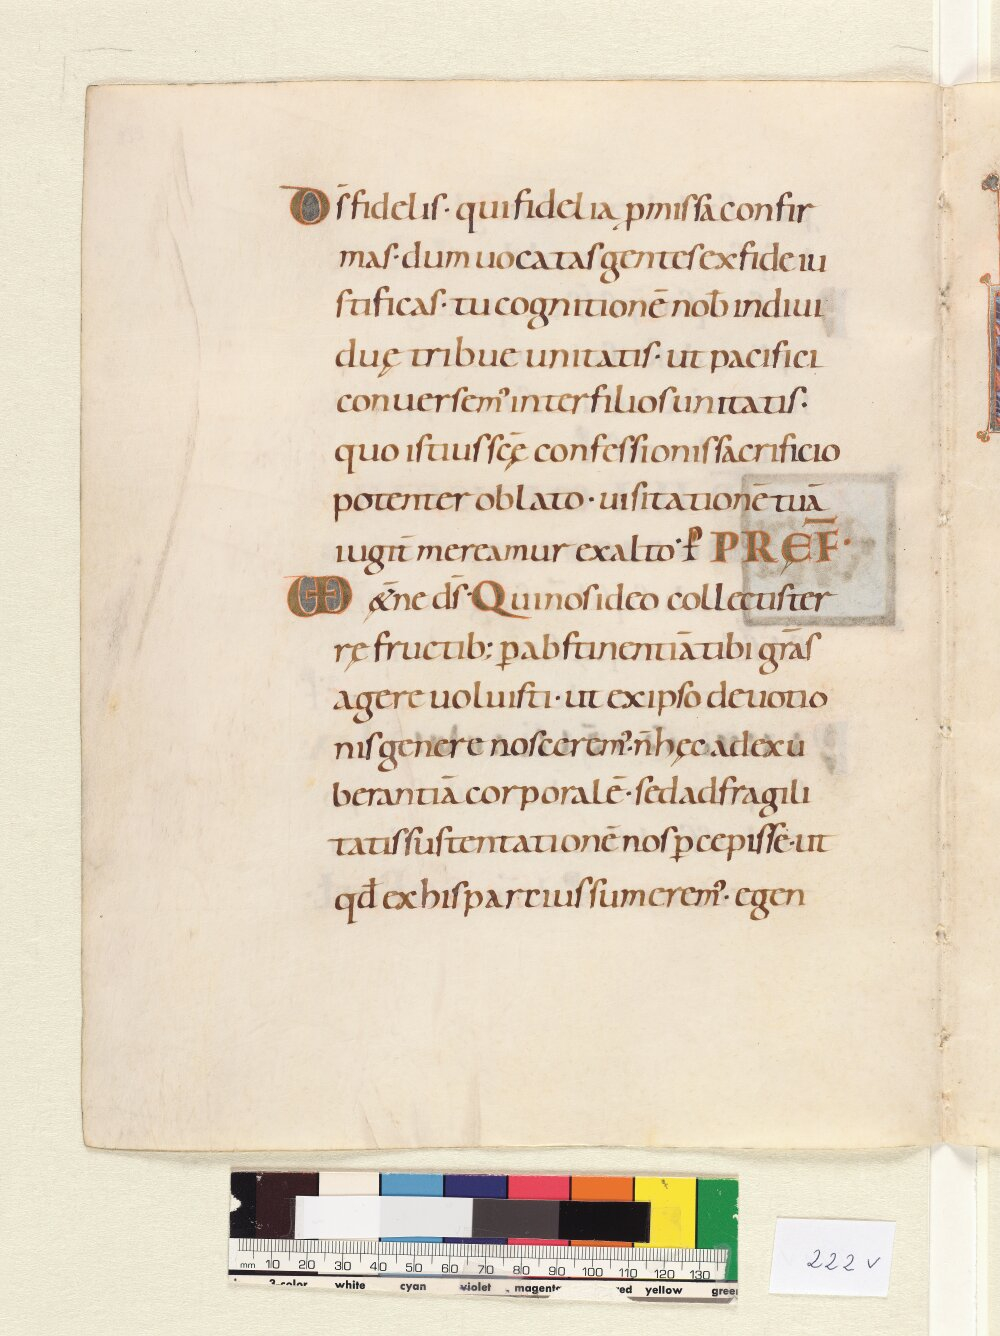 Ds̄ fidelis· qui fidelia p̱missa confir
mas· dum uocatas gentes ex fide iu
stificas· tu cognitionē nob̄ indiui
duę tribue unitatis· ut pacifici
conuersemꝰ inter filios unitatis·
quo istius scę̄ confessionis sacrificio
potenter oblato· uisitationē tuā
iugit̄ mereamur exalto· ꝑ PRĘF̄·
Ꙍ &̄ne ds̄· Qui nos ideo collectis ter
rę fructib; ꝑ abstinentiā tibi grās
agere uoluisti· ut ex ipso deuotio
nis genere nosceremꝰ· n̄ hęc ad exu
berantiā corporalē· sed ad fragili
tatis sustentationē nos ꝑcepisse· ut
qd̄ ex his partius sumeremꝰ· egen
222 v
mm 10 20 30 40 50 60 70 80 90 100 110 120 130
3-color white cyan violet magenta red yellow green